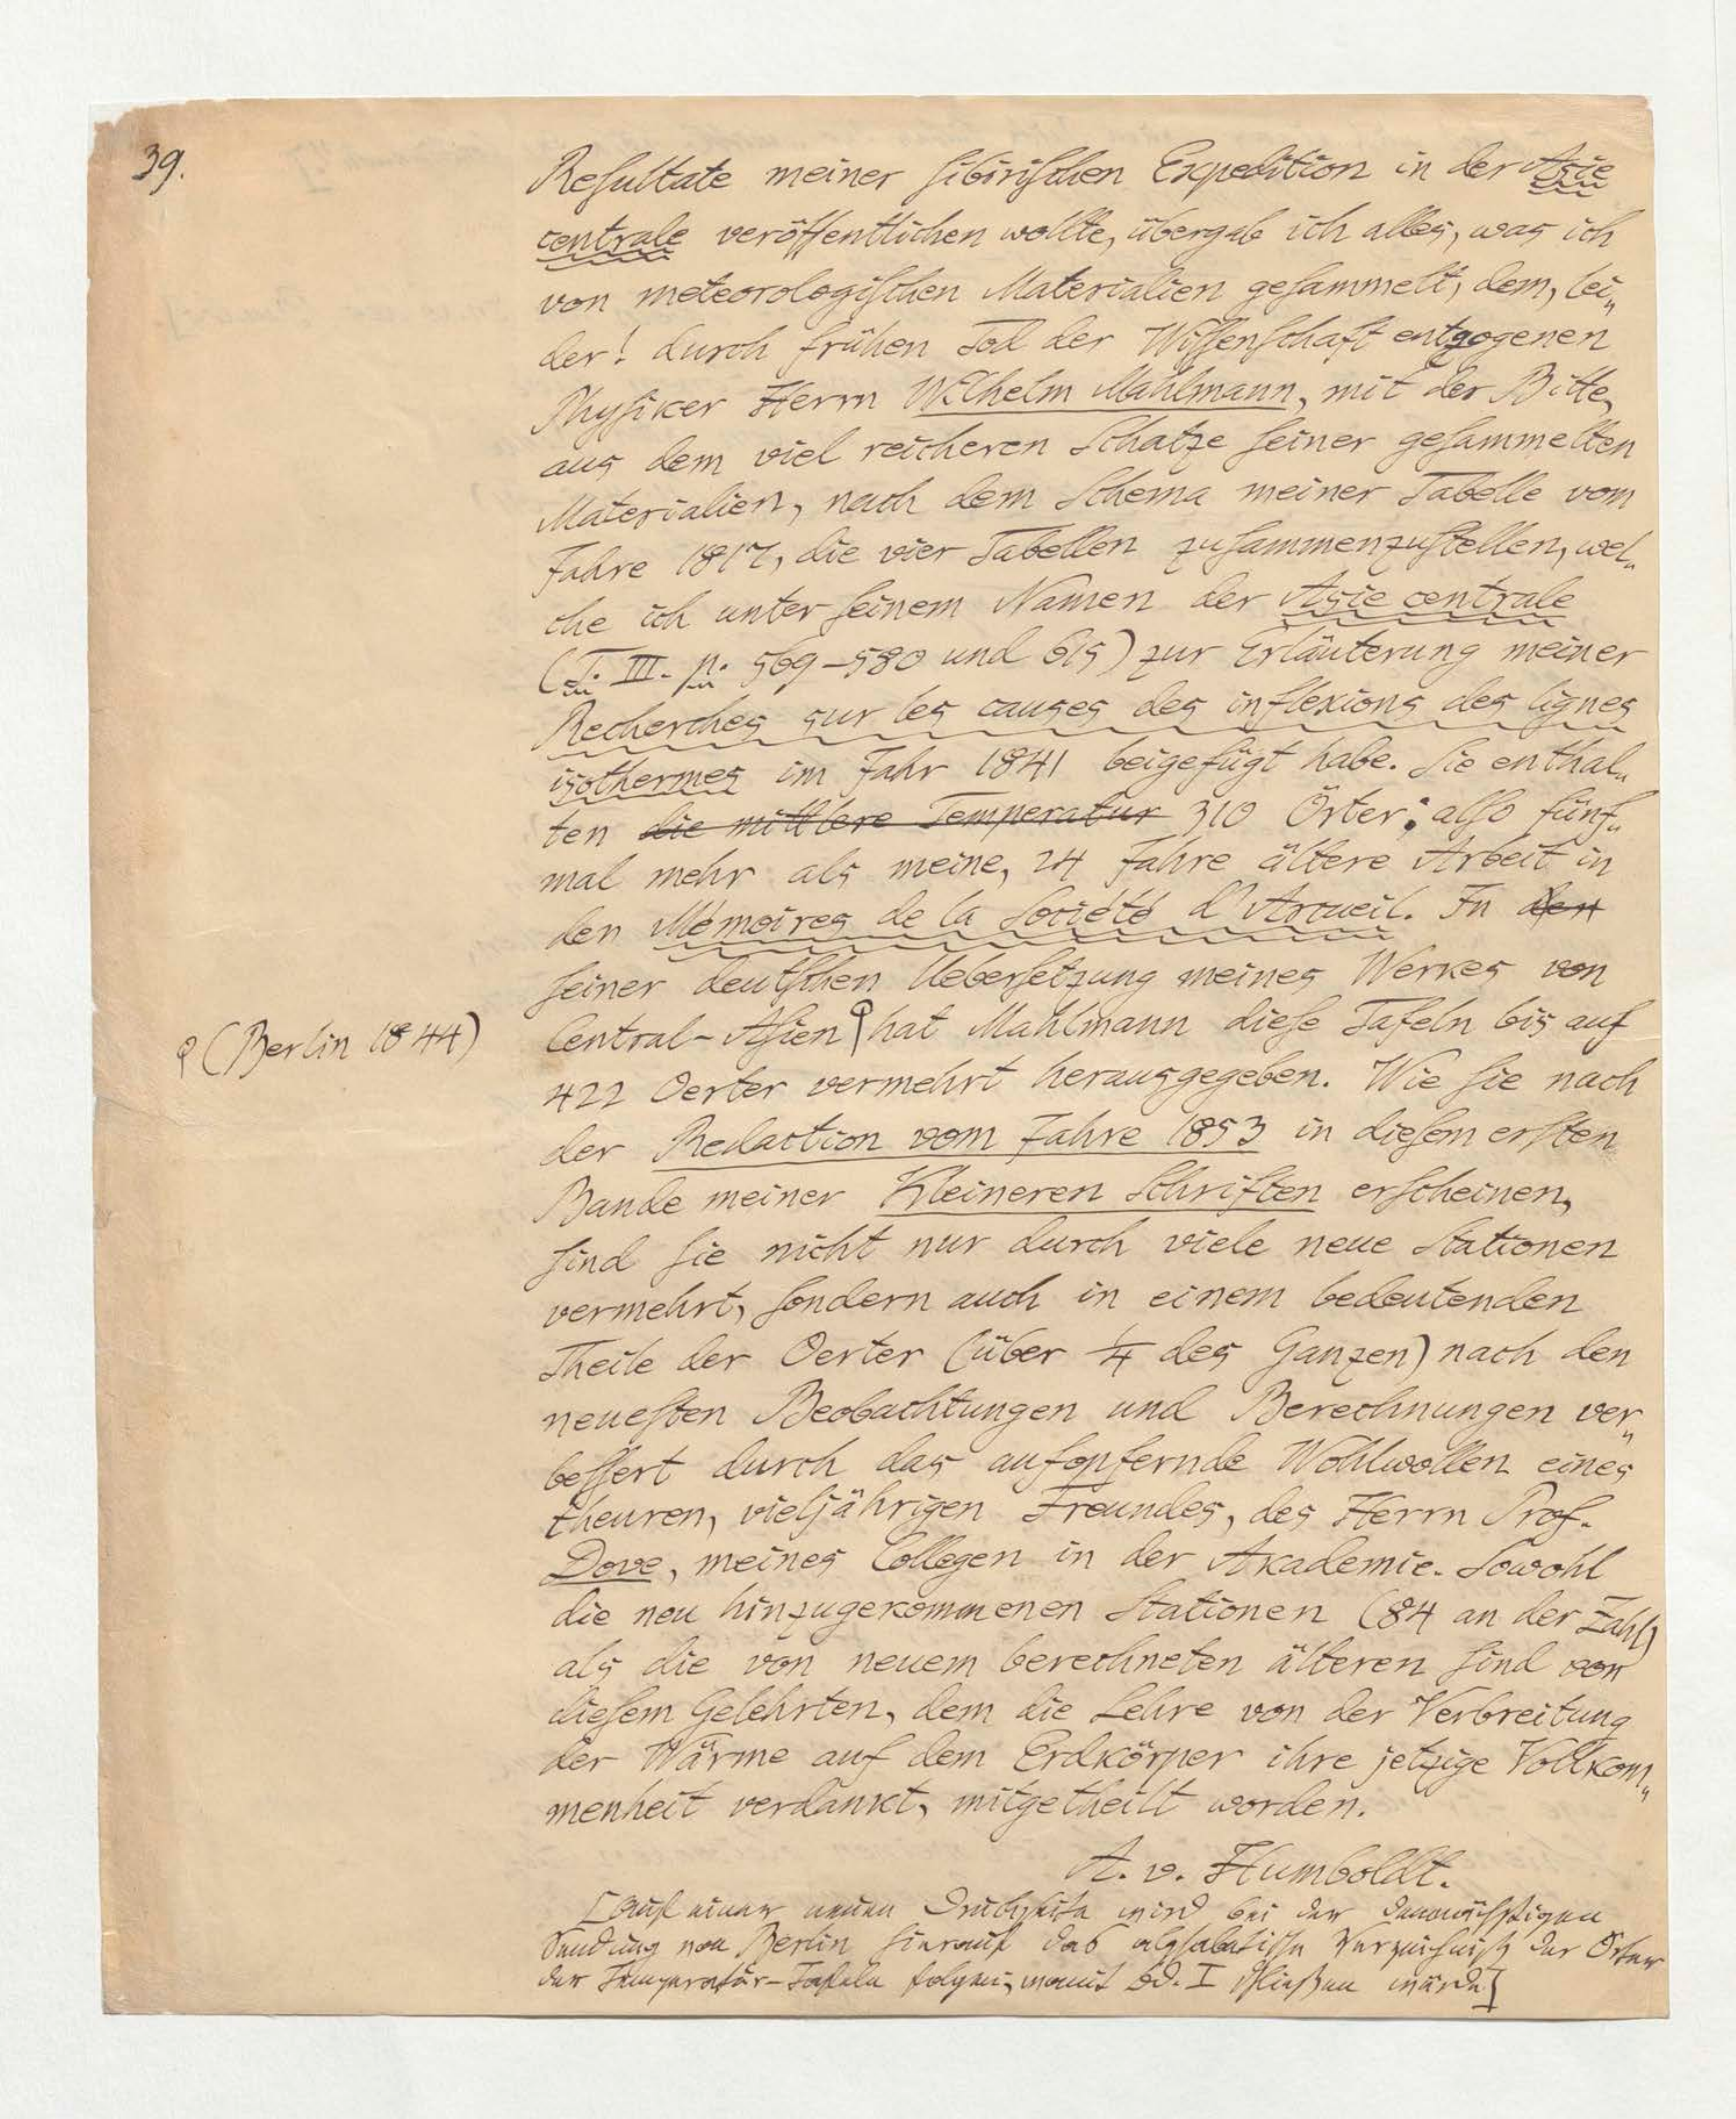 39.
Reſultate meiner ſibiriſchen Expedition in der Asie
centrale veröffentlichen wollte, übergab ich alles, was ich
von meteorologiſchen Materialien geſammelt, dem, lei„
der! durch frühen Tod der Wiſſenſchaft entzogenen
Phyſiker Herrn Wilhelm Mahlmann, mit der Bitte,
aus dem viel reicheren Schatze ſeiner geſammelten
Materialien, nach dem Schema meiner Tabelle vom
Jahre 1817, die vier Tabellen zuſammenzuſtellen, wel„
che ich unter ſeinem Namen der Asie centrale
(T. III. p. 569–580 und 615) zur Erläuterung meiner
Recherches sur les causes des inflexions des lignes
isothermes im Jahr 1841 beigefügt habe. Sie enthal„
ten die mittlere Temperatur 310 Örter; alſo fünf„
mal mehr als meine, 24 Jahre ältere Arbeit in
den Mémoires de la Société d'Arcueil. In den
ſeiner deutſchen Ueberſetzung meines Werkes von
Central-Aſien hat Mahlmann dieſe Tafeln bis auf
(Berlin 1844)
422 Oerter vermehrt herausgegeben. Wie ſie nach
der Redaction vom Jahre 1853 in dieſem erſten
Bande meiner Kleineren Schriften erſcheinen,
ſind ſie nicht nur durch viele neue Stationen
vermehrt, ſondern auch in einem bedeutenden
Theile der Oerter (über 1/4 des Ganzen) nach den
neueſten Beobachtungen und Berechnungen ver„
beſſert durch das aufopfernde Wohlwollen eines
theuren, vieljährigen Freundes, des Herrn Prof.
Dove, meines Collegen in der Akademie. Sowohl
die neu hinzugekommenen Stationen (84 an der Zahl)
als die von neuem berechneten älteren ſind von
dieſem Gelehrten, dem die Lehre von der Verbreitung
der Wärme auf dem Erdkörper ihre jetzige Vollkom„
menheit verdankt, mitgetheilt worden.
A. v. Humboldt.
[Auf einer neuen Druckſeite wird bei der demnächſtigen
Sendung von Berlin hierauf das alphabetiſche Verzeichniß der Örter
der Temperatur-Tafeln folgen; womit Bd. I ſchließen würde]